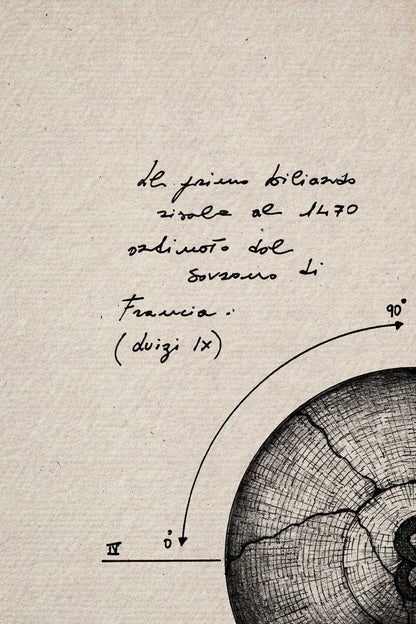 Il primo biliardo
risale al 1470
ordinato dal
sovrano di
Francia.
(Luigi IX)
90°
IV 0°
8